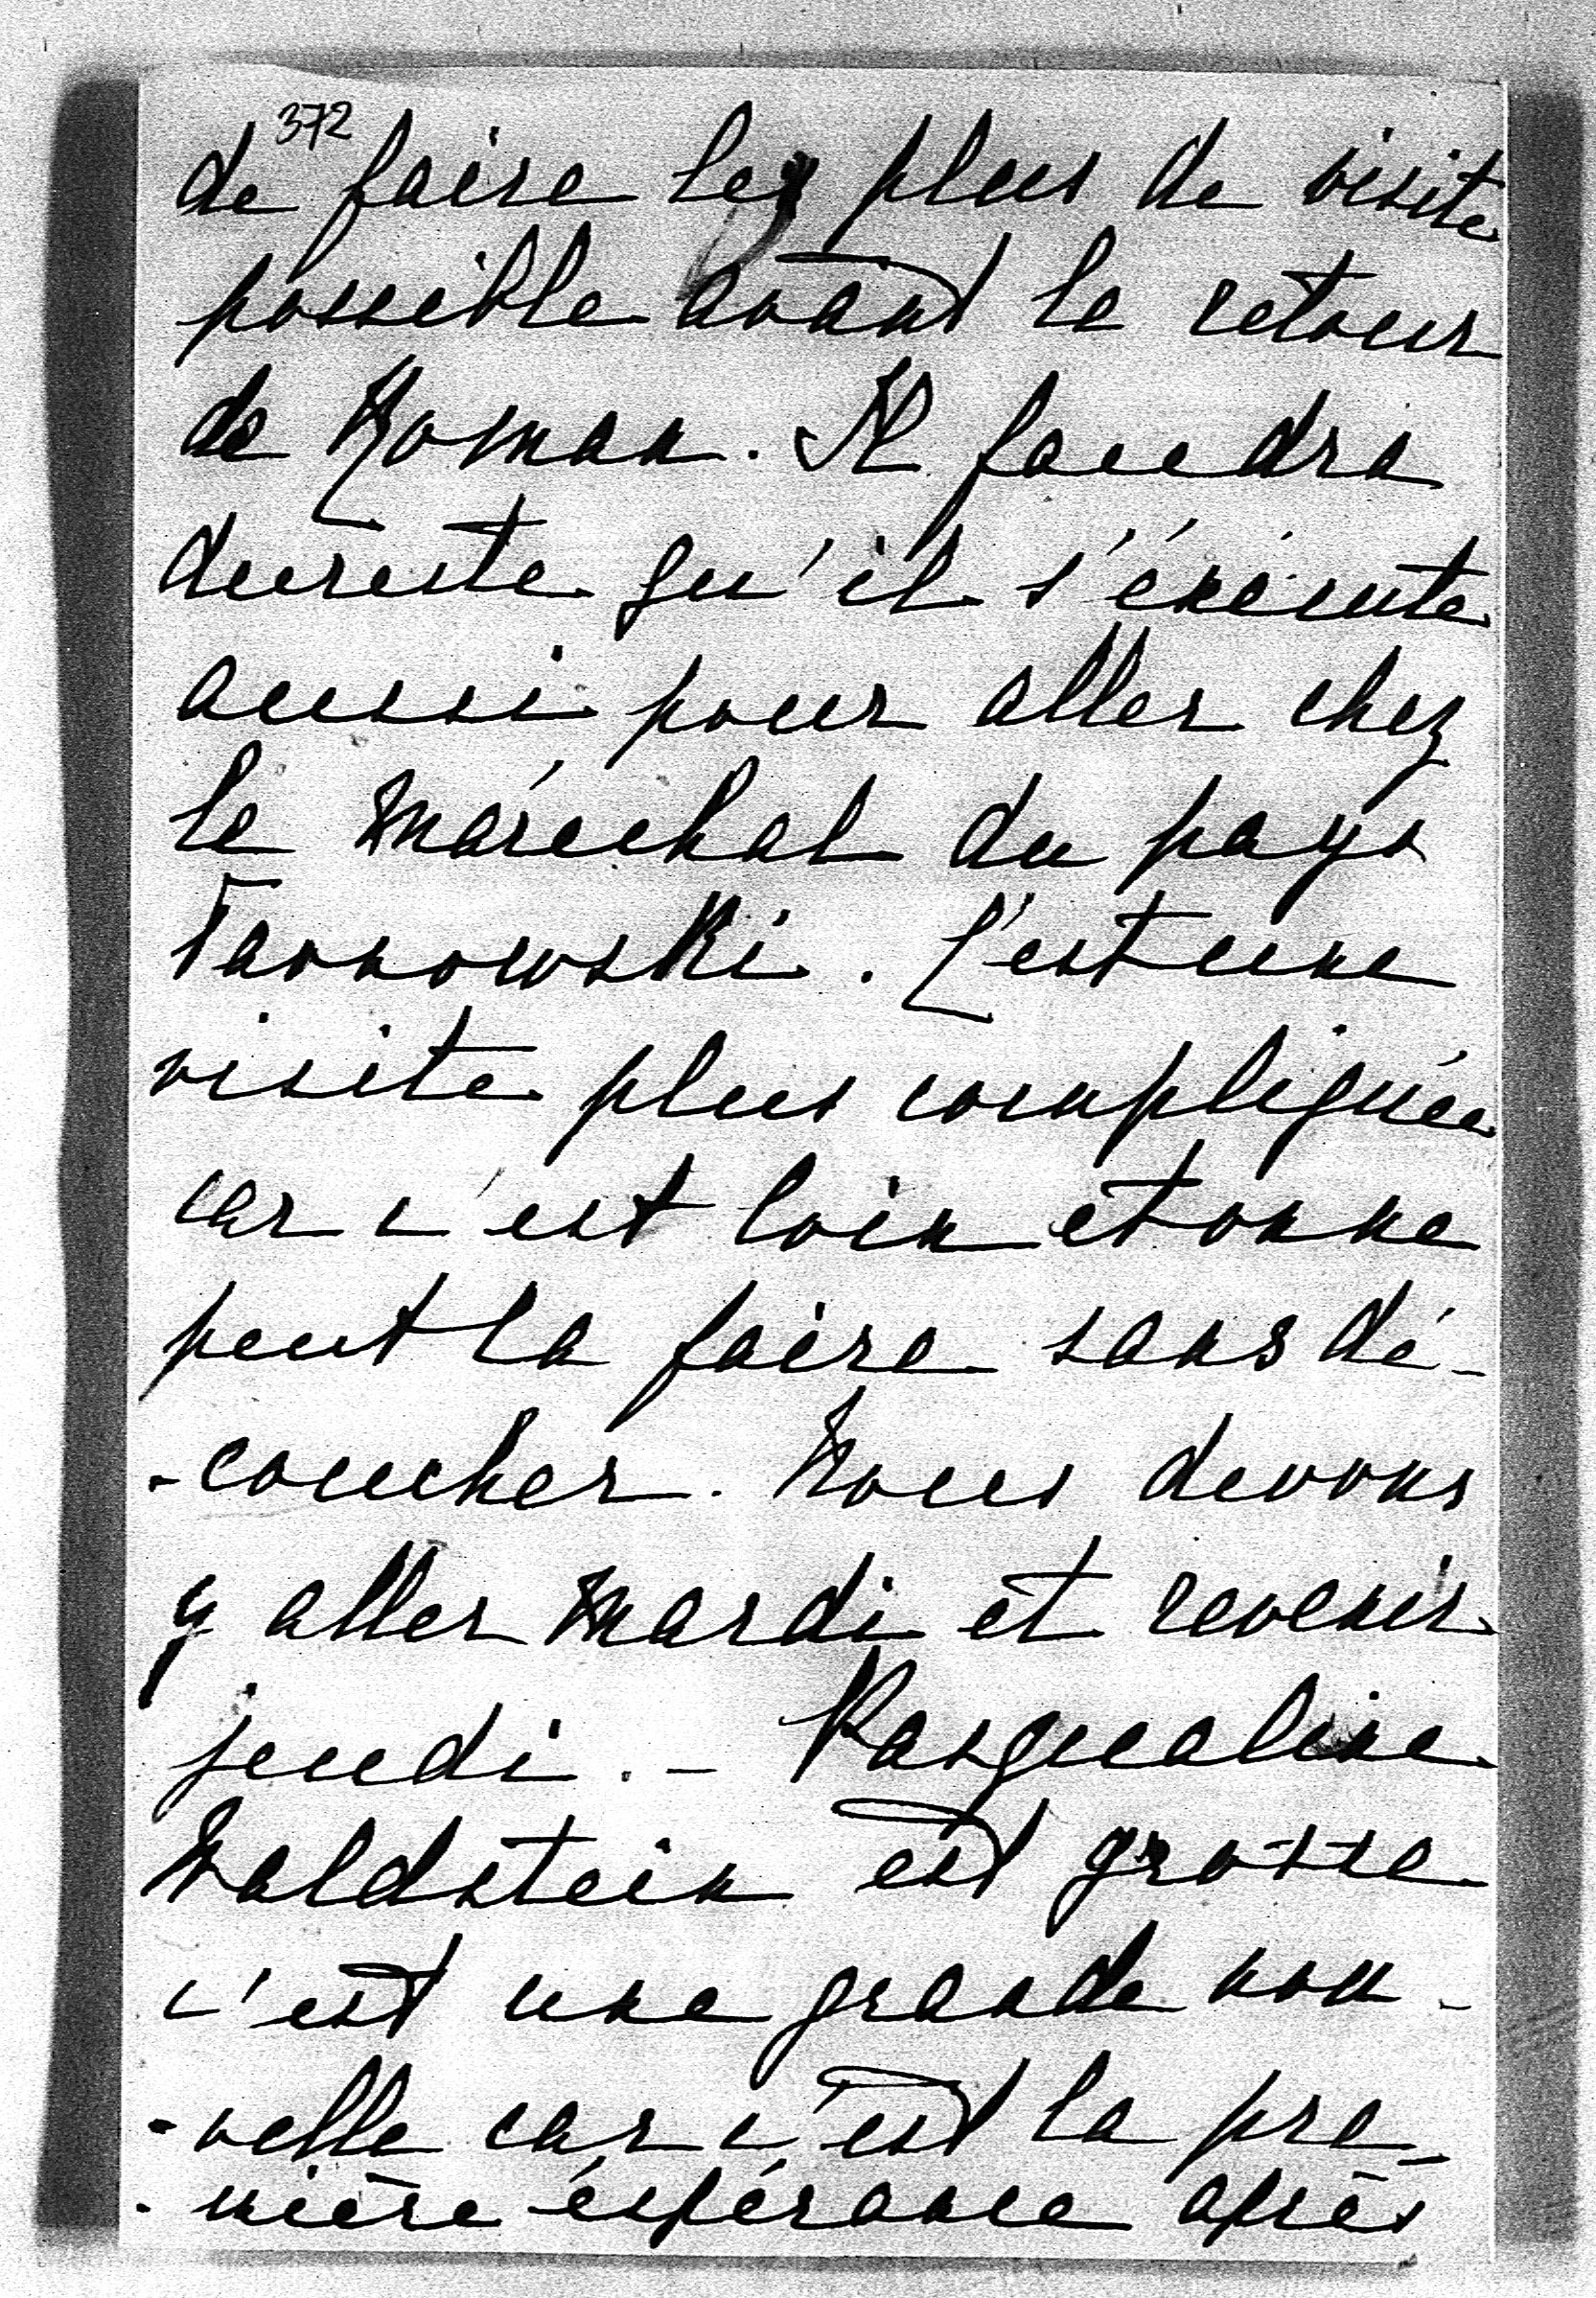 372
de faire les plus de visite
possible avant le retour
de Roman. Il faudra
dureste qu'il s'exécute
aussi pour aller chez
le maréchal du pays
Tarnowski. C'est une
visite plus compliquée
car c'est loin et on ne
peut la faire sans dé-
-coucher. Nous devons
y aller mardi et revenir
jeudi. - Pasqualine
Waldstein est grosse
c'est une grande nou-
-velle car c'est la pre-
-mière éspérance après